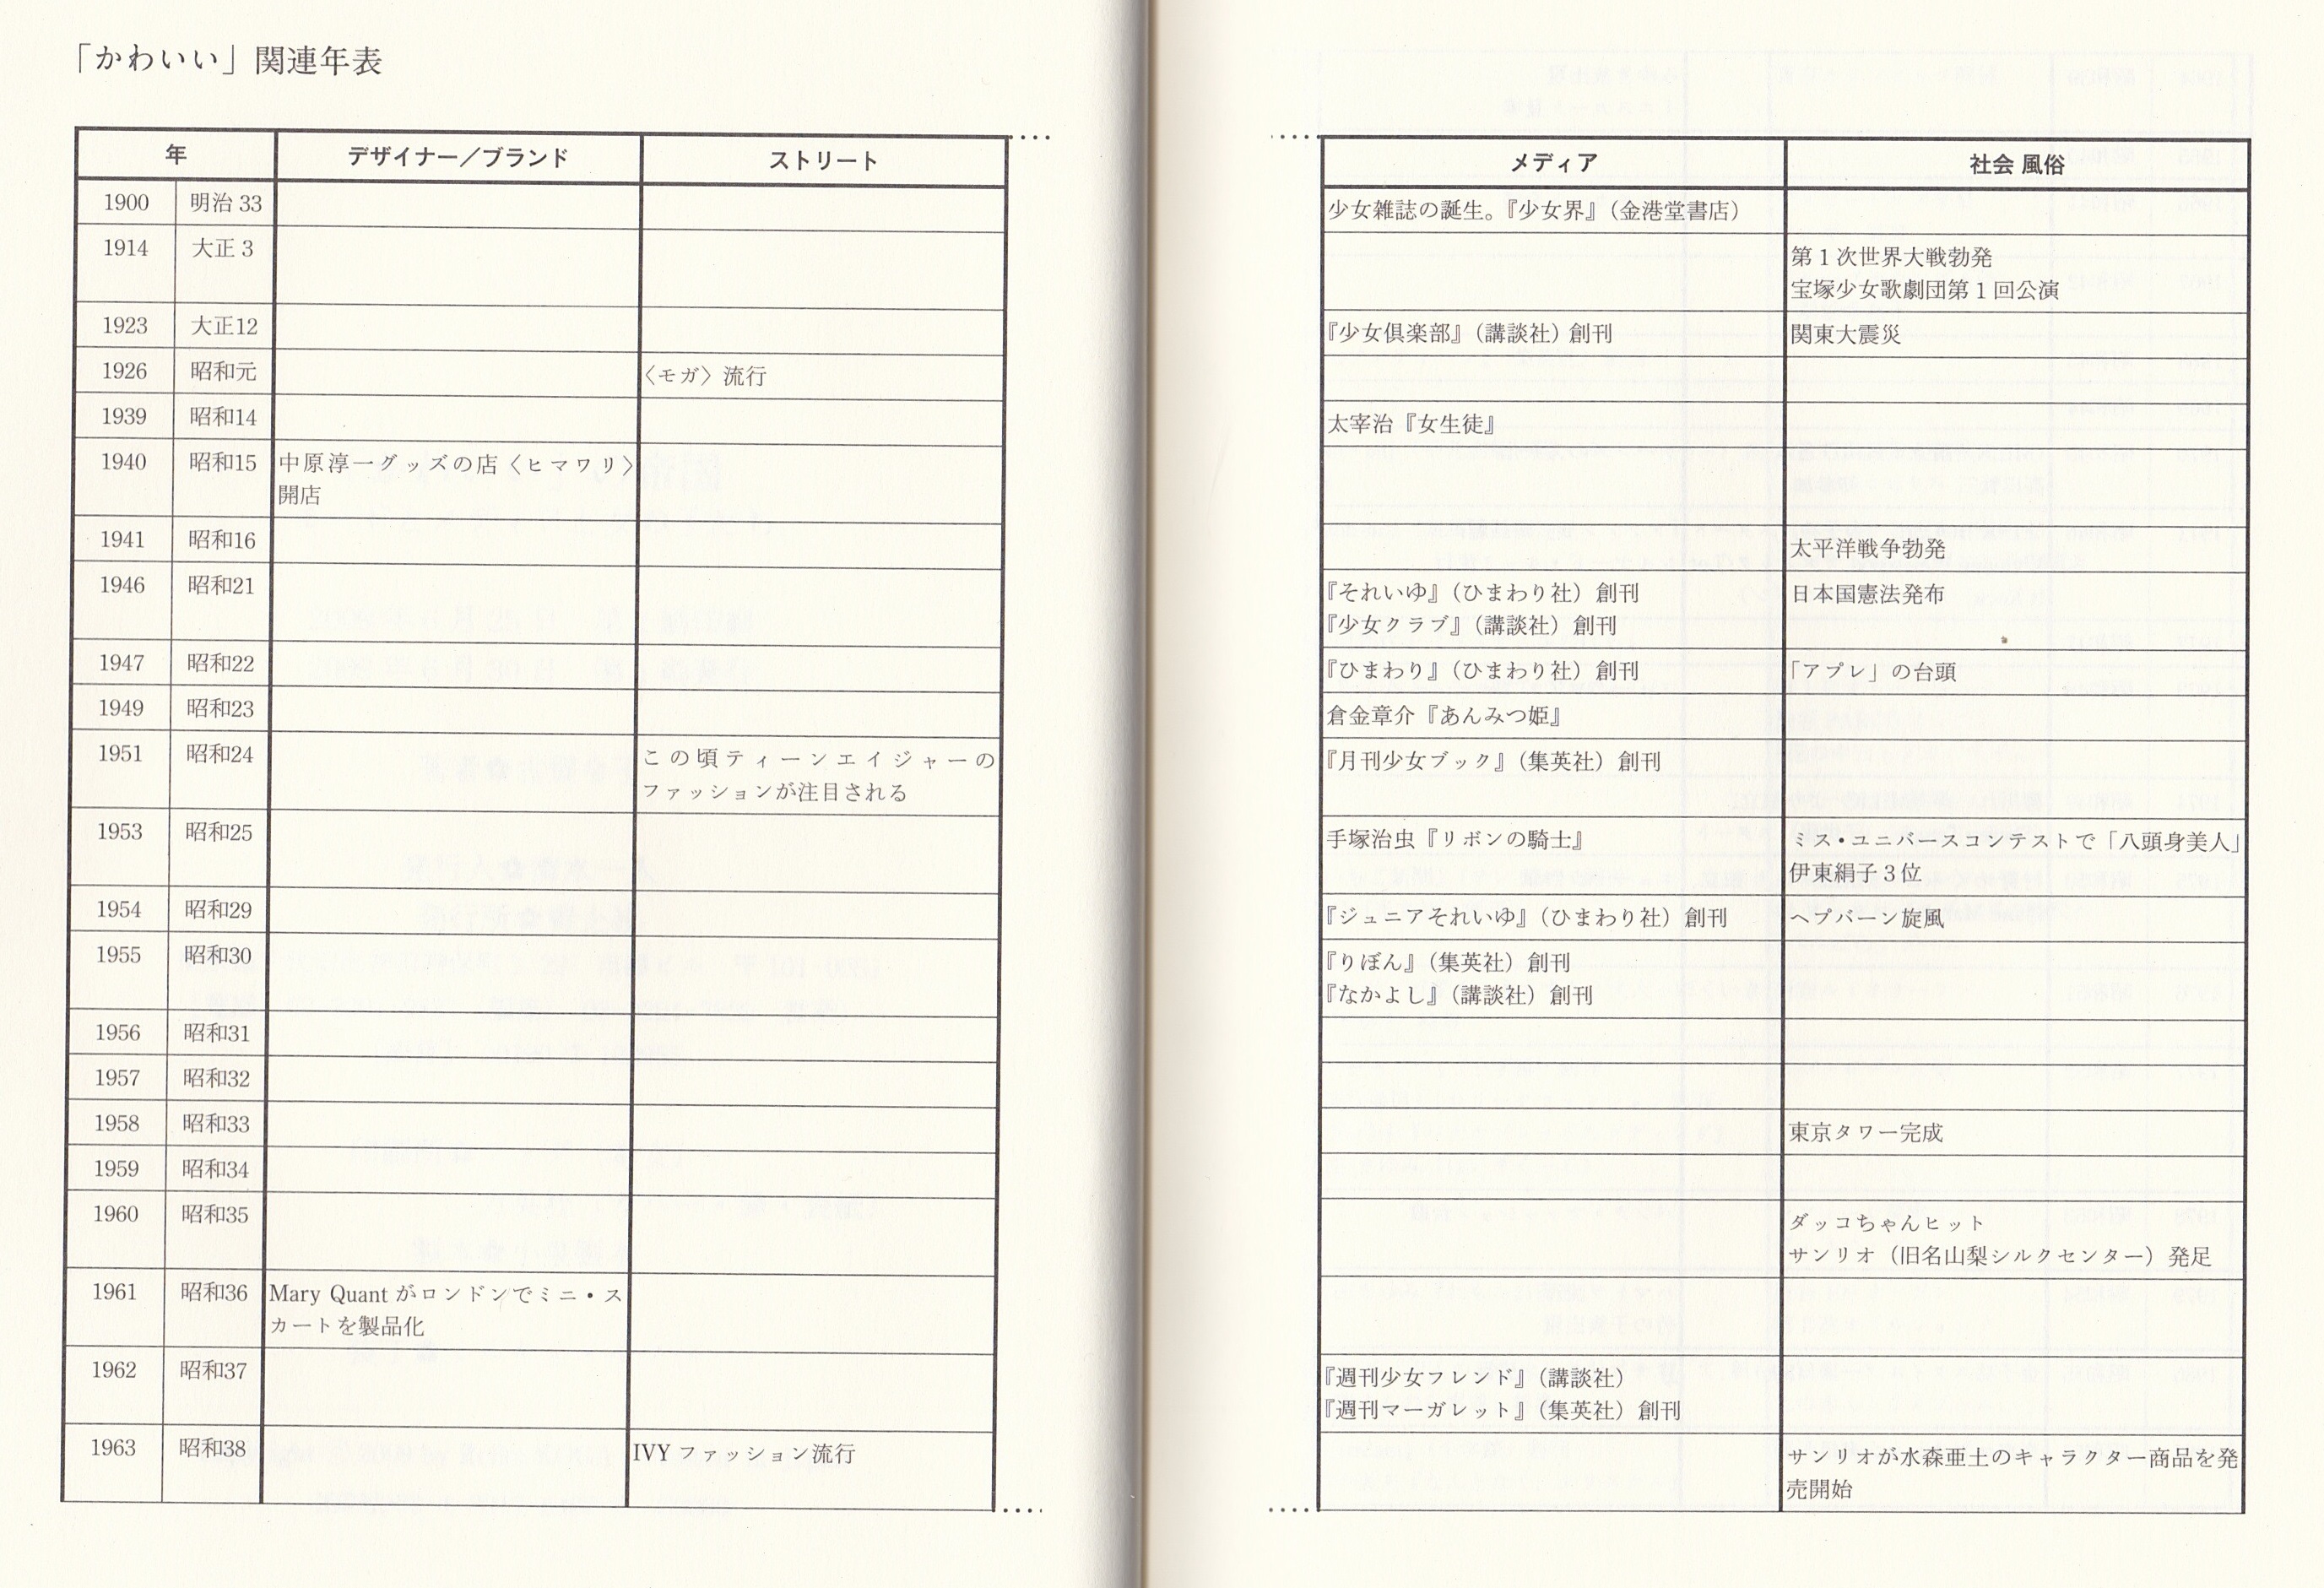 「かわいい」関連年表
年 デザイナー／ブランド ストリート メディア 社会 風俗
1900 明治33 少女雑誌の誕生。『少女界』（金港堂書店）
1914 大正3 第1次世界大戦勃発
宝塚少女歌劇団第1回公演
1923 大正12 『少女倶楽部』（講談社）創刊 関東大震災
1926 昭和元 〈モガ〉流行
1939 昭和14 太宰治『女生徒』
1940 昭和15 中原淳一グッズの店〈ヒマワリ〉
開店
1941 昭和16 太平洋戦争勃発
1946 昭和21 『それいゆ』（ひまわり社）創刊 日本国憲法発布
『少女クラブ』（講談社）創刊
1947 昭和22 『ひまわり』（ひまわり社）創刊 「アプレ」の台頭
1949 昭和23 倉金章介『あんみつ姫』
1951 昭和24 この頃ティーンエイジャーの 『月刊少女ブック』（集英社）創刊
ファッションが注目される
1953 昭和25 手塚治虫『リボンの騎士』 ミス・ユニバースコンテストで「八頭身美人」
伊東絹子3位
1954 昭和29 『ジュニアそれいゆ』（ひまわり社）創刊 ヘプバーン旋風
1955 昭和30 『りぼん』（集英社）創刊
『なかよし』（講談社）創刊
1956 昭和31
1957 昭和32
1958 昭和33 東京タワー完成
1959 昭和34
1960 昭和35 ダッコちゃんヒット
サンリオ（旧名山梨シルクセンター）発足
1961 昭和36 Mary Quantがロンドンでミニ・ス
カートを製品化
1962 昭和37 『週刊少女フレンド』（講談社）
『週刊マーガレット』（集英社）創刊
1963 昭和38 IVYファッション流行 サンリオが水森亜土のキャラクター商品を発
売開始